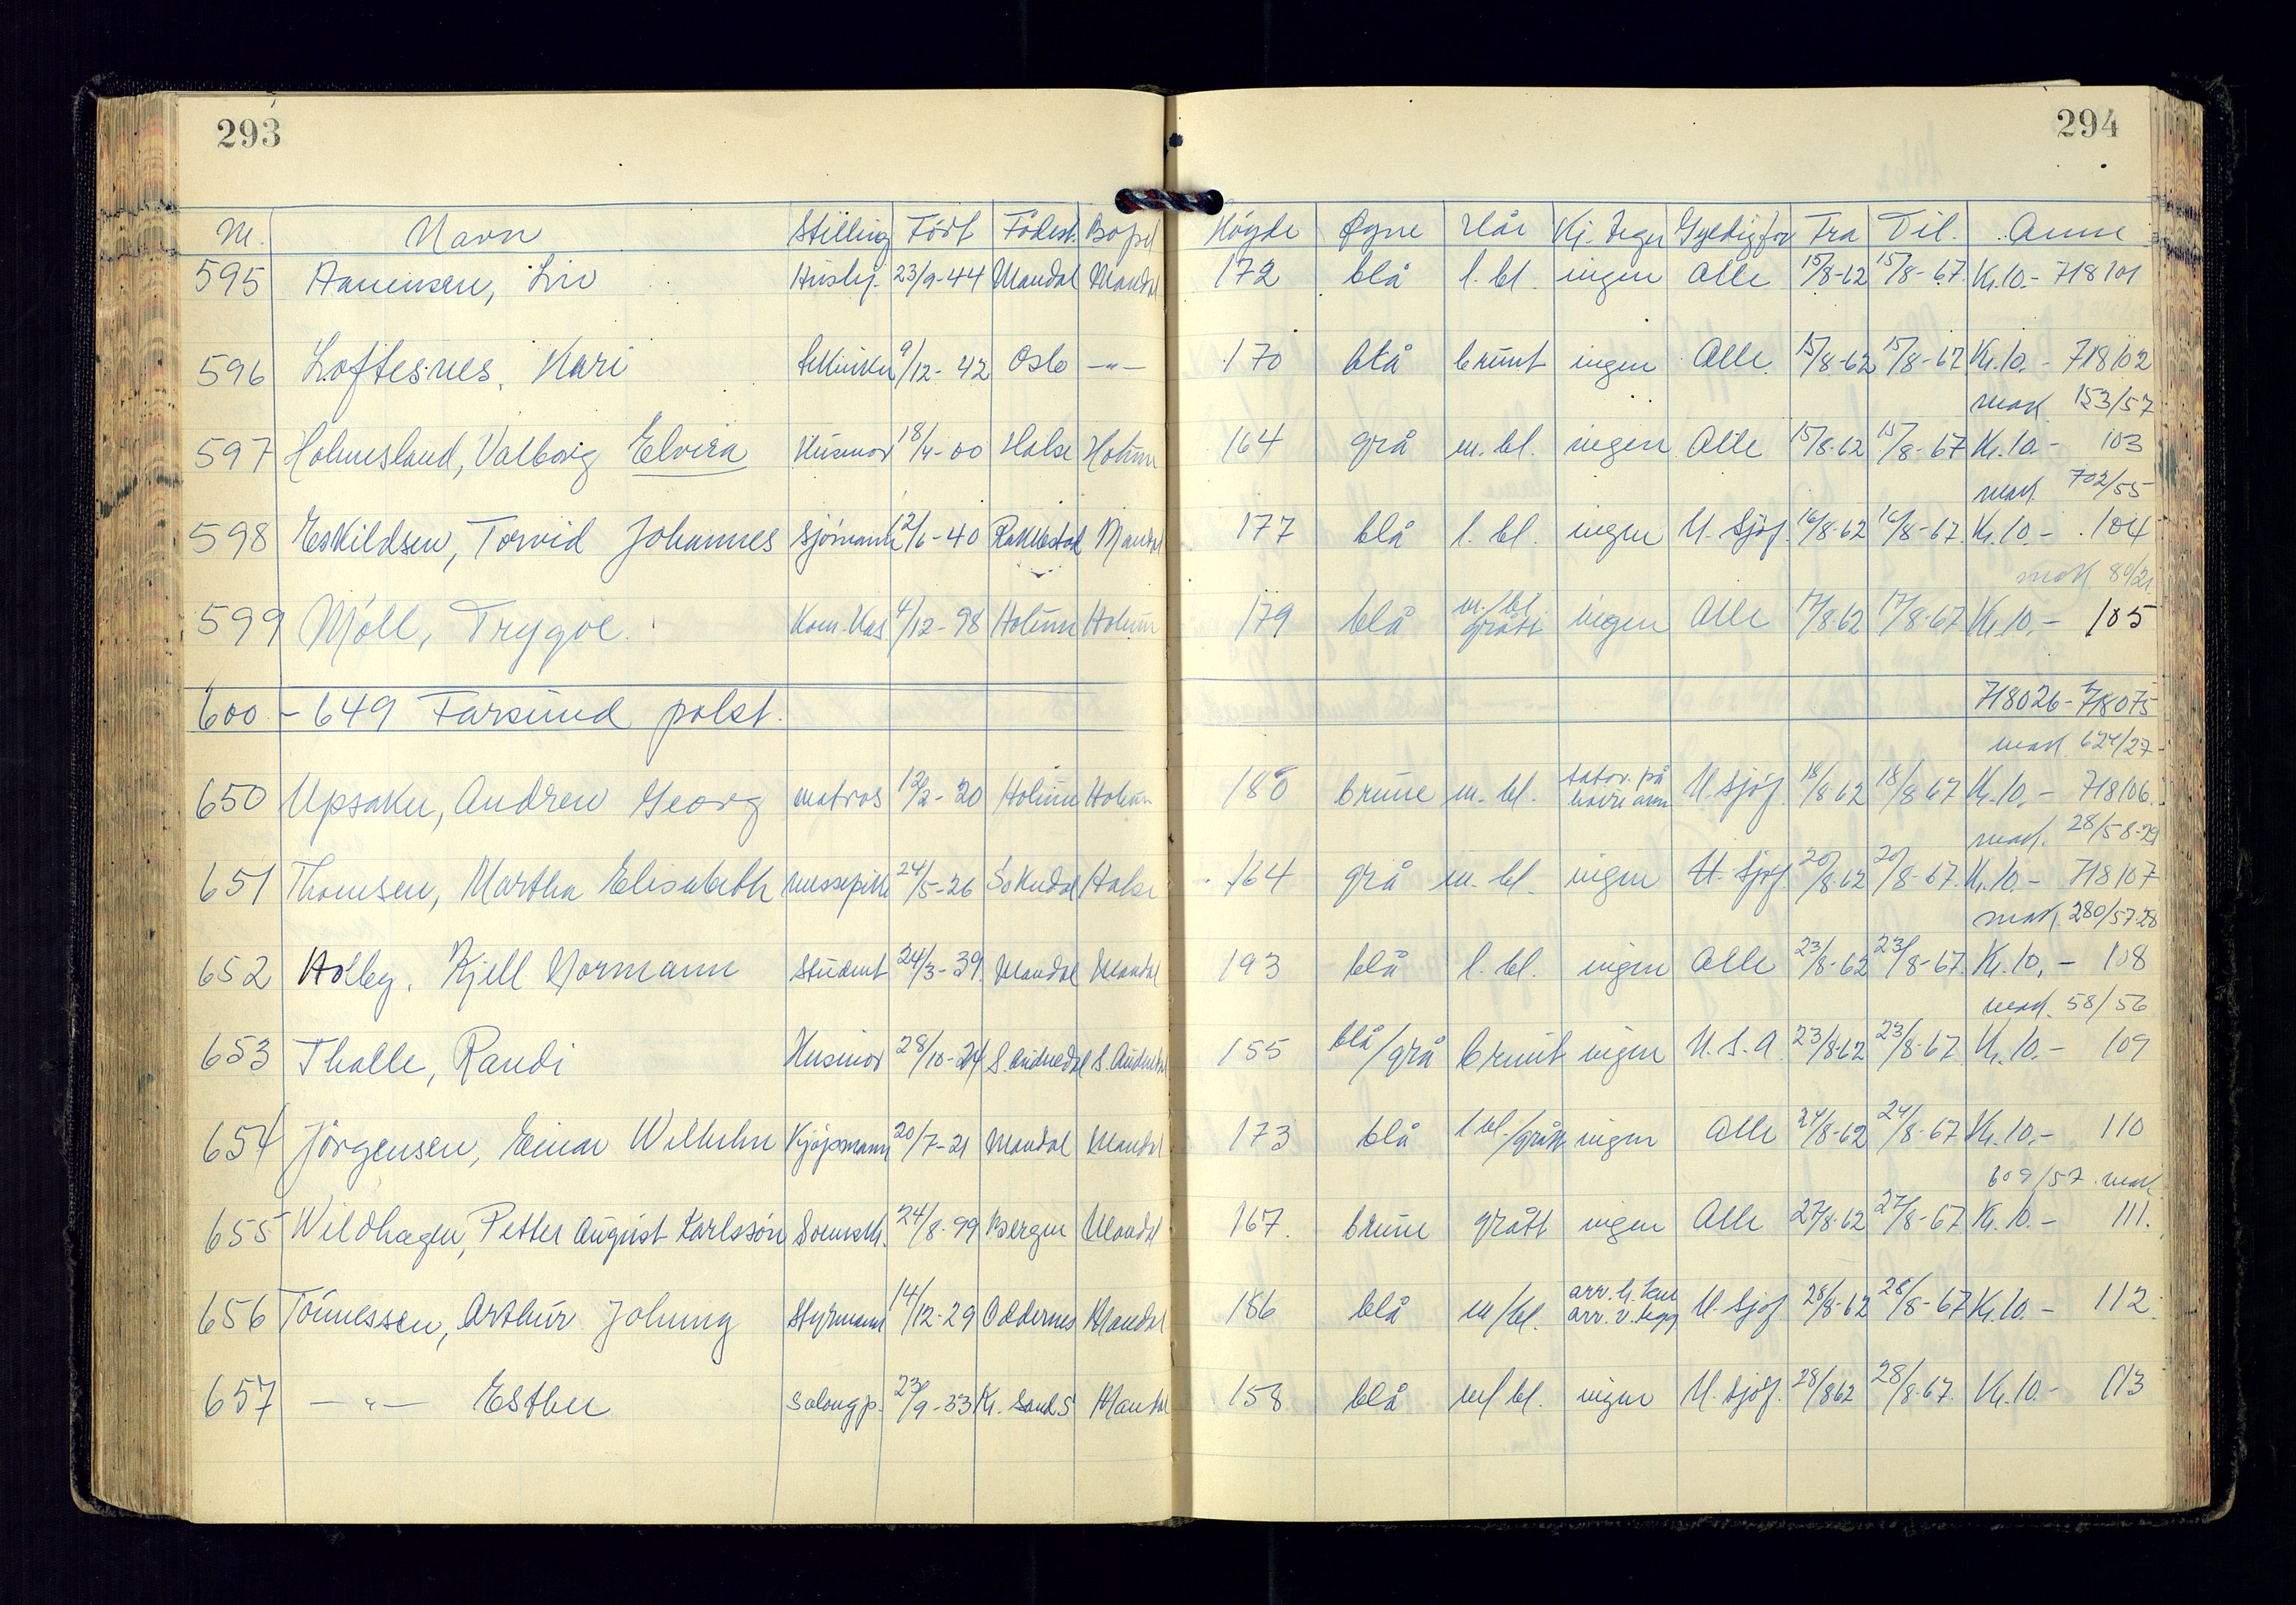 293
Nr. Navn Stilling Født Fødest. Bopel
595 Aanensen, Liv Hushj. 23/9-44 Mandal Mandal
596 Loftesnes, Kari 9/12-42 Oslo —"—
597 Holmesland, Valborg Elvira Husmor 18/4-00 Halse Holum
598 Eskildsen, Torvid Johannes Sjömann 12/6-40 Rakkestad Mandal
599 Møll, Trygve Kom. Kas 4/12-98 Holum Holum
600 - 649 Farsund polst.
650 Upsaker, Andrew Georg matros 12/2-20 Holum Holum
651 Thomsen, Martha Elisabeth messepike 24/5-26 Sokndal Halse
652 Holby, Kjell Normann Student 24/3-39 Mandal Mandal
653 Thalle, Randi Husmor 28/10-24 S. Audnedal S. Audnedal
654 Jörgensen, Einar Wilhelm Kjøpmann 20/7-21 Mandal Mandal
655 Wildhagen, Petter August Karlssön 24/8-99 Bergen Mandal
656 Tönnessen, Arthur Johnny Styrmann 14/12-29 Oddernes Mandal
657 —"— Esther Salongp. 23/9-33 Kr. Sand S Mandal
294
Høyde Øyne Hår Kj. tegn Gyldig for Fra Til Anm
172 blå l. bl. ingen Alle 15/8-62 15/8-67. Kr. 10.- 718101
170 blå brunt ingen Alle 15/8-62 15/8-67 Kr. 10.- 718102
mak 153/57
164 grå m. bl. ingen Alle 15/8-62 15/8-67 Kr. 10.- 103
mak 702/55
177 blå l. bl. ingen U. Sjöf. 16/8-62 16/8-67. Kr. 10.- 104
mak
179 blå m./bl. grått ingen Alle 17/8-62 17/8-67 Kr. 10.- 105
718026-718075
mak 624/27
180 brune m. bl. tatov. på høire arm U. Sjöf. 18/8-62 18/8-67 Kr. 10.- 718106
mak. 28/58-29
164 grå m. bl. ingen U. Sjöf. 20/8-62 20/8-67. Kr. 10.- 718107
mak. 280/57-28
193 blå l. bl. ingen Alle 23/8-62 23/8-67. Kr. 10.- 108
mak. 58/56
155 blå/grå brunt ingen U.S.A. 23/8-62 23/8-67. Kr. 10.- 109
173 blå l bl./grått ingen Alle 24/8-62 24/8-67 Kr. 10.- 110
609/57 mak
167. brune grått ingen Alle 27/8-62 27/8-67 Kr. 10.- 111.
186 blå m/bl. arr. h. arr. v. legg U. Sjöf. 28/8-62 28/8-67 Kr. 10.- 112
158 blå m/bl. ingen U. Sjöf. 28/8 62 28/8-67. Kr. 10.- 113